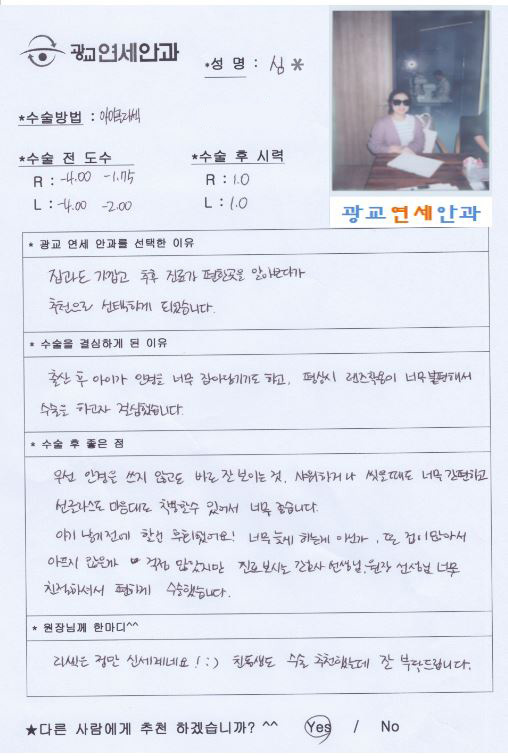 광교연세안과
*성 명 : 심*
*수술방법 : 아이라섹
*수술 전 도수
R : -4.00 -1.75
L : -4.00 -2.00
*수술 후 시력
R : 1.0
L : 1.0
광교연세안과
* 광교 연세 안과를 선택한 이유
집과도 가깝고 추후 진료가 편한곳을 알아보다가
추천으로 선택하게 되었습니다.
* 수술을 결심하게 된 이유
출산 후 아이가 안경을 너무 잡아당기기도 하고, 평상시 렌즈착용이 너무 불편해서
수술을 하고자 결심했습니다.
* 수술 후 좋은 점
우선 안경을 쓰지 않고도 바로 잘 보이는 것, 샤워하거나 씻을때도 너무 간편하고
선글라스도 마음대로 착용할수 있어서 너무 좋습니다.
아기 낳기전에 할걸 후회했어요! 너무 늦게 하는게 아닌가, 또 겁이 많아서
아프지 않을까 걱정 많았지만 진료보시는 간호사 선생님, 원장 선생님 너무
친절하셔서 편하게 수술했습니다.
* 원장님께 한마디^^
라섹은 정말 신세계네요! :) 친동생도 수술 추천했는데 잘 부탁드립니다.
★다른 사람에게 추천 하겠습니까? ^^ Yes / No